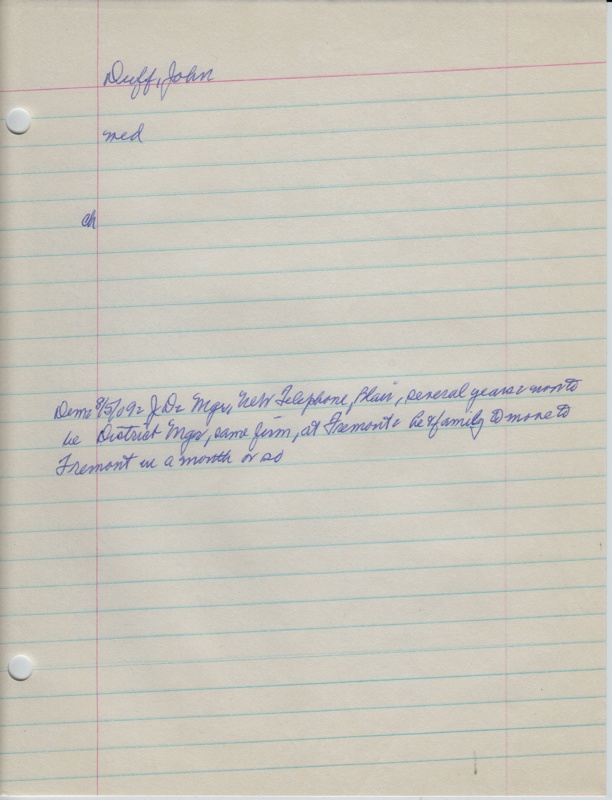 Duff, John
med
ch
Dem: 8/5/09: J.D. = Mgr, Neb Telephone, Blair, several years = now to
be District Mgr, same firm, at Fremont = he & family to move to
Fremont in a month or so